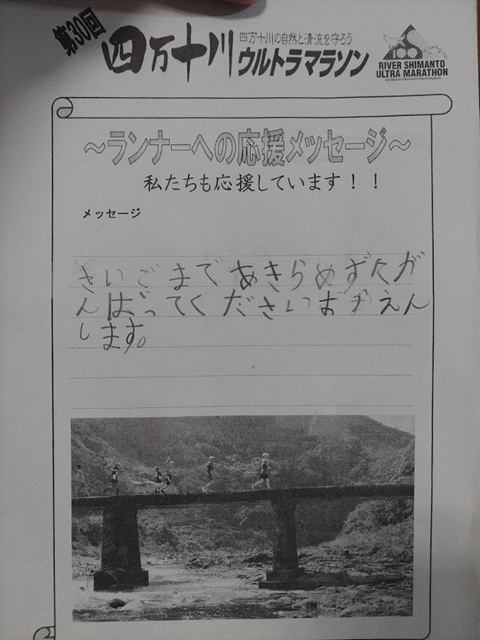 第30回
四万十川の自然と清流を守ろう
四万十川ウルトラマラソン
RIVER SHIMANTO
ULTRA MARATHON
～ランナーへの応援メッセージ～
私たちも応援しています！！
メッセージ
さいごまであきらめずにが
んばってくださいおうえん
します。